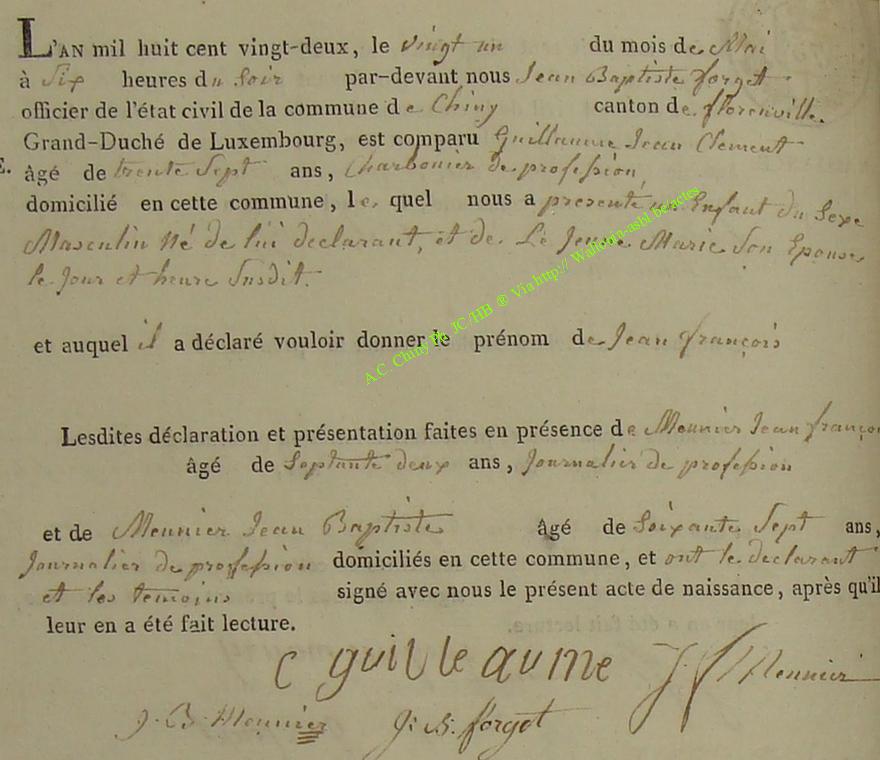 L'AN mil huit cent vingt-deux, le vingt un du mois de Mai
à Six heures du Soir par-devant nous Jean Baptiste forget
officier de l'état civil de la commune de Chiny canton de florenville
Grand-Duché de Luxembourg, est comparu Guillaume Jean Clement
E. âgé de trente Sept ans, Charbonier de profession,
domicilié en cette commune, le quel nous a presenté un Enfant du Sexe
Masculin Né de lui declarant, et de Le Jeune Marie Son Epouse
le Jour et heure Susdit.
et auquel il a déclaré vouloir donner le prénom de Jean françois
Lesdites déclaration et présentation faites en présence de Meunier Jean françois
âgé de Septante deux ans, Journalier de profession
et de Meunier Jean Baptiste âgé de Soixante Sept ans,
Journalier de profession domiciliés en cette commune, et ont le declarant
et les temoins signé avec nous le présent acte de naissance, après qu'il
leur en a été fait lecture.
C guilleaume J f Meunier
J. B. Meunier J: B. forget
A.C. Chiny Ph. JC/HB ® Via http:// Wallonia-asbl.be/actes